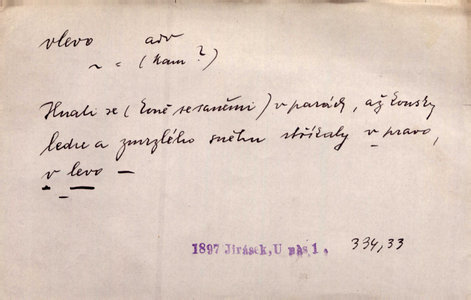 vlevo adv
~ = (kam?)
Hnali se (koně se saněmi) v parách, až kousky
ledu a zmrzlého sněhu stříkaly v pravo,
v levo —
1897 Jirásek, U nás 1. 334,33